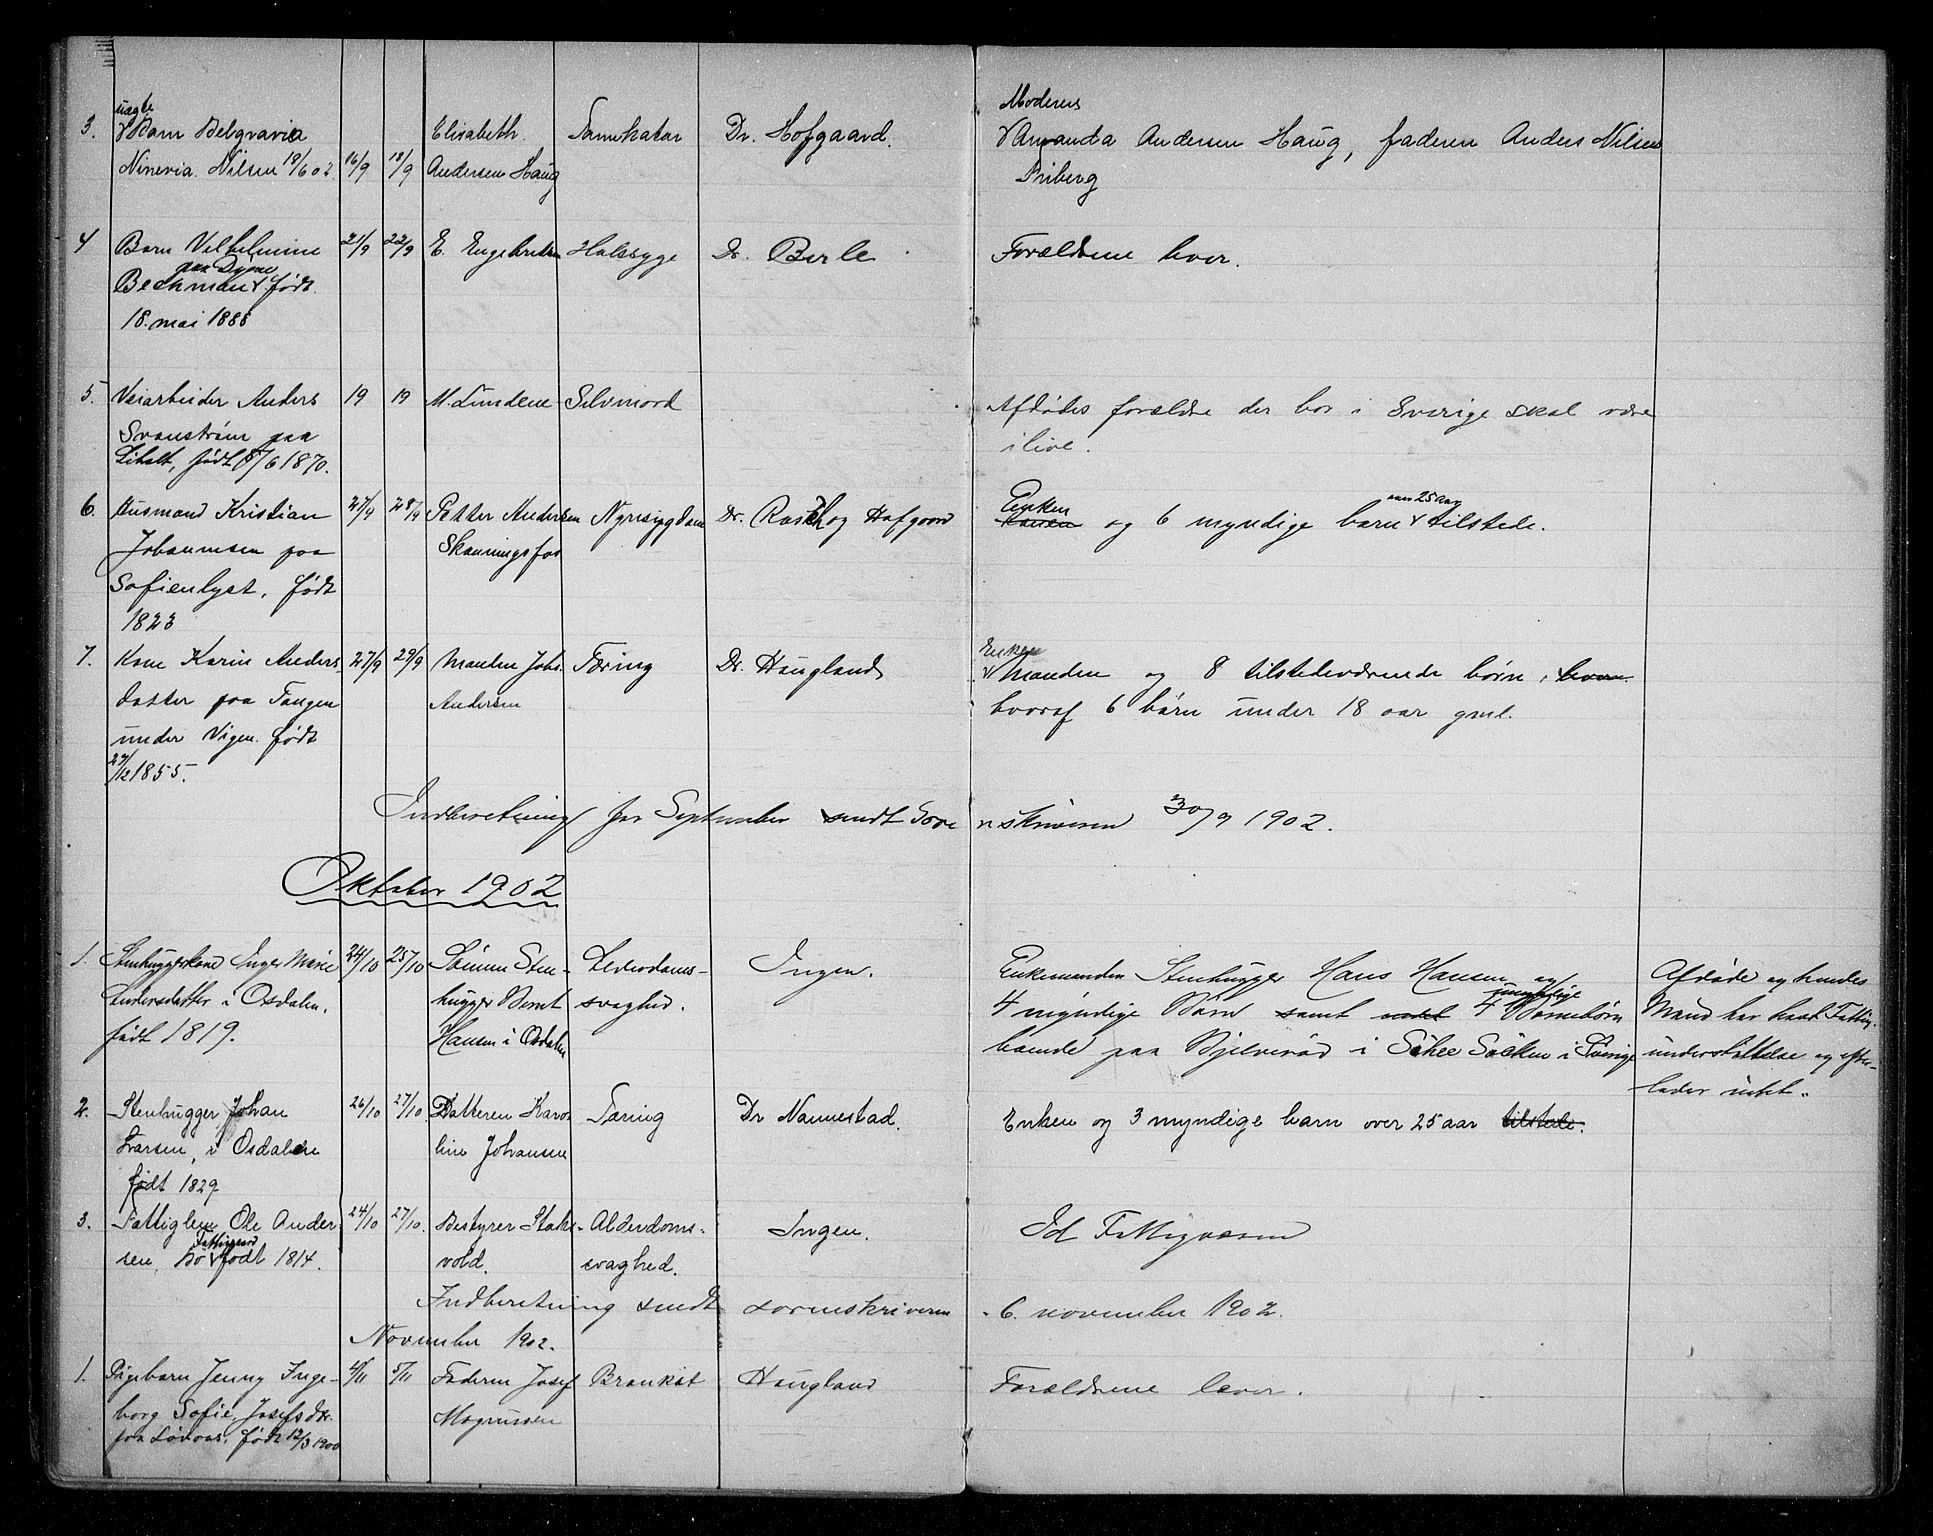 uægte
3. Barn Belgravia Elisabeth. Tarmkatar Dr. Hofgaard. Moderen
Ninevia Nilsen 18/6 02. 16/9 18/9 Andersen Haug Amanda Andersen Haug, faderen Anders Nilsen
Friberg
4 Barn Vilhelmine 21/9 22/9 E. Engebretsen Halssyge Dr. Berle Forældrene lever.
paa Dyrne
Beckman født
18. mai 1888
5. Veiarbeider Anders 19 19 M. Lundene Selvmord Afdødes forældre der bor i Sverige skal være
Svanstrøm paa ilive.
født 8/6 1870.
6. Husmand Kristian 27/9 28/9 Petter Andersen Nyresygdom Dr. Rasch og Hofgaard Enken og 6 myndige barn over 25 aar tilstede.
Johannesen paa Skanningsfos
Sofienlyst, født
1823
7. Kone Karin Anders 27/9 29/9 Manden Johs. Tæring Dr. Haugland Enkem manden og 8 tilstedeværende børn, hvoraf
datter paa Tangen Andersen hvoraf 6 børn under 18 aar gml.
under Vigen. født
27/12 1855.
Indberetning for September sendt Sorenskriveren 30/9 1902.
Oktober 1902
1. Stenhuggerkone Inger Marie 24/10 25/10 Sønnen Sten- Alderdoms- Ingen. Enkemanden Stenhugger Hans Hansen og Afdøde og hendes
Andersdatter i Osdalen. hugger Bernt svaghed. 4 myndige Børn samt 4 umyndige Børnebørn Mand har havt Fattig-
født 1819. Hansen i Osdalen boende paa Bjelverød i Skee Socken i Sverige understøttelse og efter-
lader intet.
2. Stenhugger Johan 26/10 27/10 Datteren Karo- Tæring Dr Nannestad. Enken og 3 myndige barn over 25 aar tilstede.
Larsen, i Osdalen line Johansen
født 1829
3. Fattiglem Ole Ander- 24/10 27/10. Bestyrer Stoks- Alderdoms- Ingen. Id Fattigvæsen
Fattiggaard
sen, bo født 1814. vold. svaghed.
Indberetning sendt sorenskriveren 6. november 1902.
November 1902.
1. Pigebarn Jenny Inge- 4/11 5/11 Faderen Josef Bronkit Haugland Forældrene lever.
borg Sofie, Josefsdtr. Magnussen
paa Løvaas, født 12/3 1900